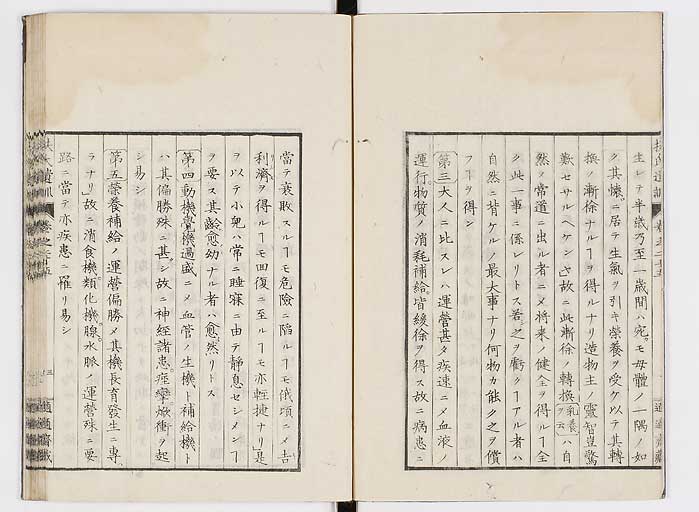 生レテ半歳乃至一歳間ハ宛モ母體ノ一隅ノ如
ク其懐ニ居テ生氣ヲ引キ榮養ヲ受ケ以テ其轉
換ノ漸徐ナルヿヲ得ルナリ造物主ノ靈智豈驚
歎セサルヘケンヤ故ニ此漸徐ノ轉換乳養ヲ云ハ自
然ノ常道ニ出ル者ニメ將来ノ健全ヲ得ルヿ全
ク此一事ニ係レリトス若之ヲ虧クヿアル者ハ
自然ニ背ケルノ最大事ナリ何物カ能ク之ヲ償
フヿヲ得ン
第三大人ニ比スレハ運營甚タ疾速ニメ血液ノ
運行物質ノ消耗補給皆緩徐ヲ得ス故ニ病患ニ
當テ衰敗スルヿモ危險ニ陥ルヿモ俄頃ニメ吉
利濟ヲ得ルヿモ回復ニ至ルヿモ亦軽捷ナリ是
ヲ以テ小兒ハ常ニ睡寐ニ由テ静息セシメンヿ
ヲ要ス其齢愈幼ナル者ハ愈然リトス
第四動機覺機過盛ニメ血管ノ生機ト補給機ト
ハ其偏勝殊ニ甚シ故ニ神經諸患痙攣焮衝ヲ起
シ易シ
第五榮養補給ノ運營偏勝メ其機長育發生ニ專
ラナリ故ニ消食機類化機腺水脈ノ運營殊ニ要
路ニ當テ亦疾患ニ罹リ易シ